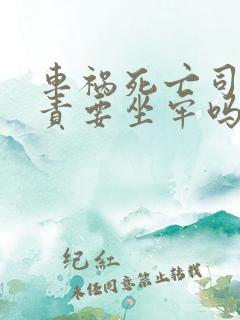 车祸死亡司
责要坐牢吗
纪红
未经同意禁止转载